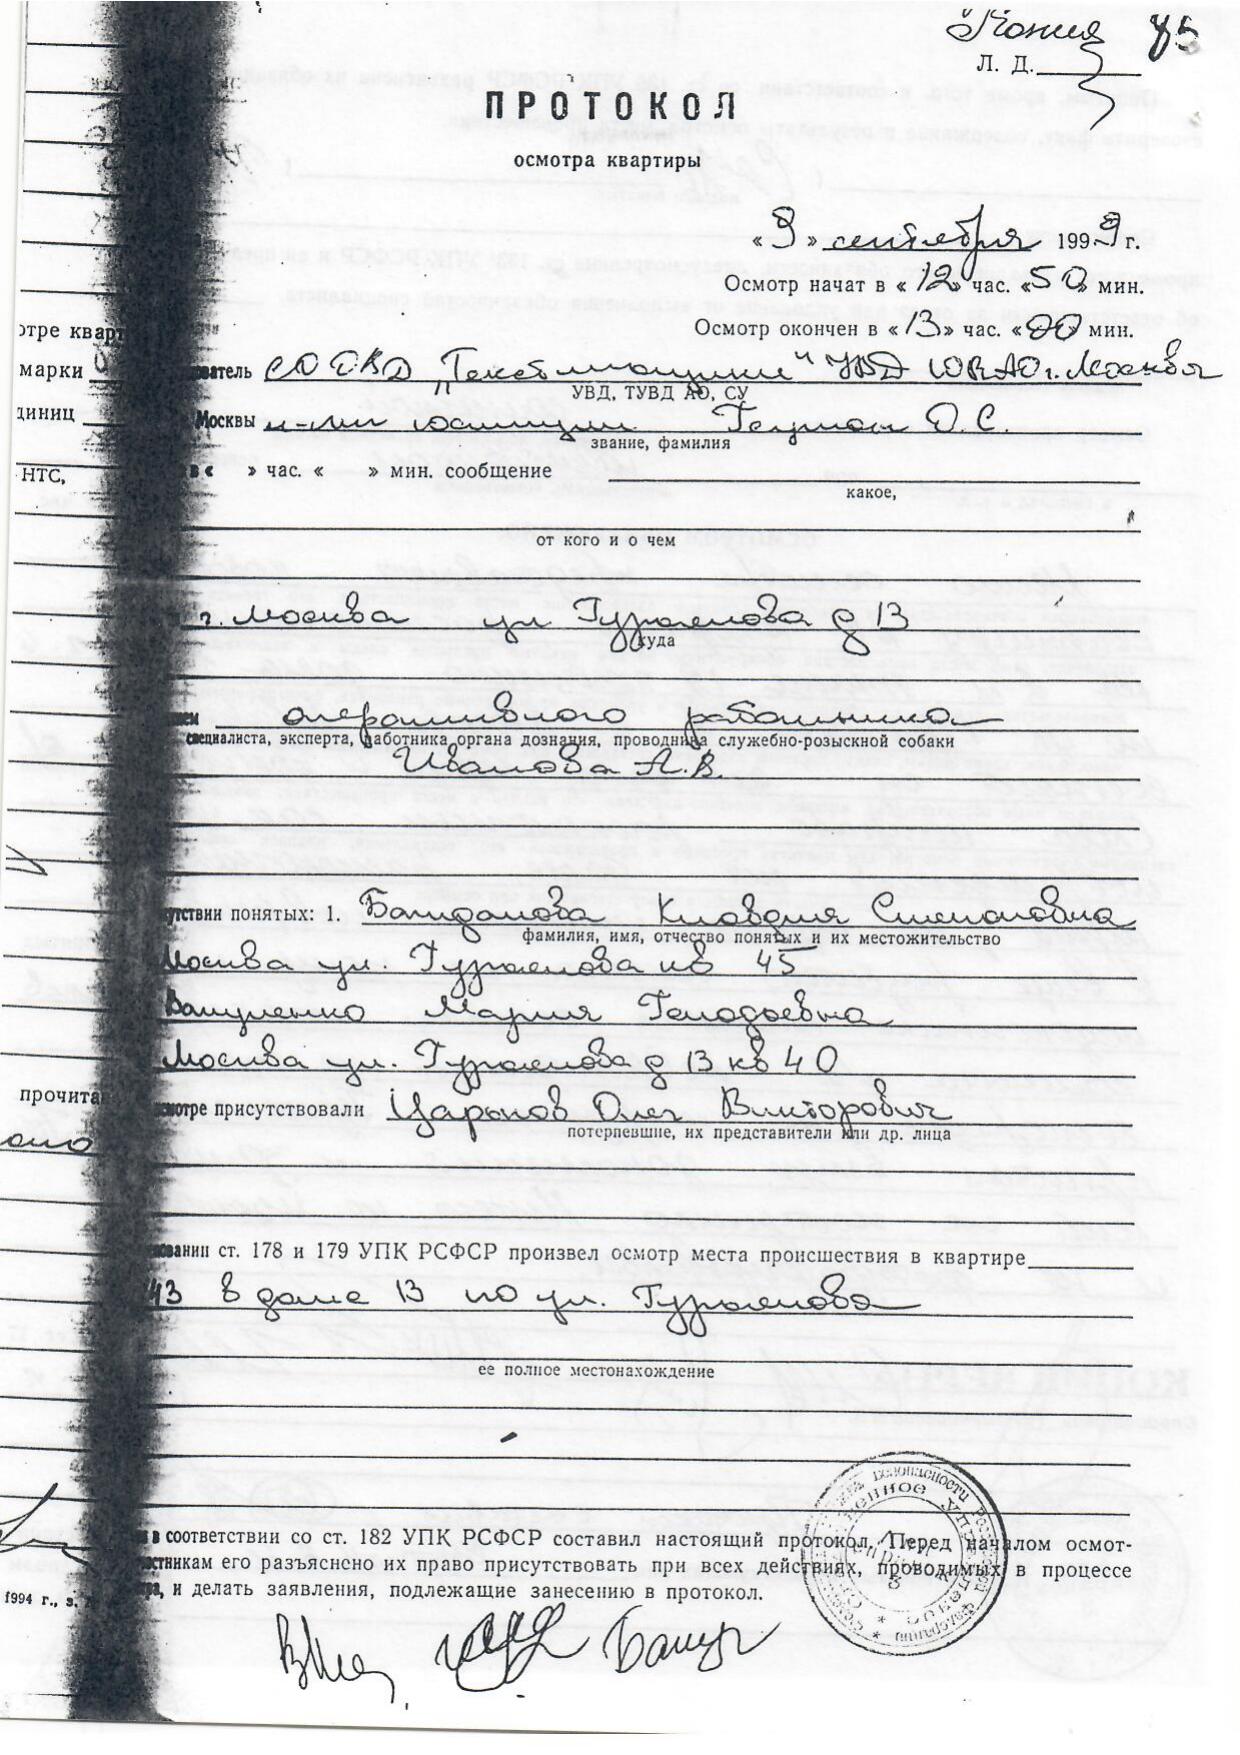 Копия 45
Л. Д.
ПРОТОКОЛ
осмотра квартиры
« 9 » сентября 1999 г.
Осмотр начат в « 12 » час. « 50 » мин.
Осмотр окончен в « 13 » час. « 20 » мин.
отре кварт
марки
ователь СО ОВД "Текстильщики" УВД ЮВАО г. Москвы
УВД, ТУВД АО, СУ
диниц
Москвы м-нт юстиции Д.С.
звание, фамилия
НТС,
в « » час. « » мин. сообщение
какое,
от кого и о чем
г. Москва ул Гурьянова д 13
куда
ием оперативного работника
специалиста, эксперта, работника органа дознания, проводника служебно-розыскной собаки
Иванова А.В.
утствии понятых: 1. Клавдия Степановна
фамилия, имя, отчество понятых и их местожительство
Москва ул. Гурьянова кв 45
Мария
Москва ул. Гурьянова д 13 кв 40
прочита
осмотре присутствовали Царьков Олег Викторович
потерпевшие, их представители или др. лица
овании ст. 178 и 179 УПК РСФСР произвел осмотр места происшествия в квартире
43 в доме 13 по ул. Гурьянова
ее полное местонахождение
в соответствии со ст. 182 УПК РСФСР составил настоящий протокол. Перед началом осмот-
стникам его разъяснено их право присутствовать при всех действиях, проводимых в процессе
и делать заявления, подлежащие занесению в протокол.
1994 г., з.